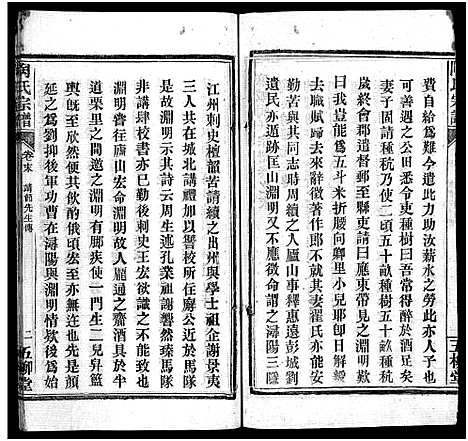 陶氏宗譜 五柳堂
費自給爲難今遣此力助汝薪水之勞此亦人子也
可善遇之公田悉令吏種樹曰吾常得醉於酒足矣
妻子固請種秔乃使二頃五十畝種樹五十畝種秔
歲終會郡遣督郵至縣東請曰應東帶見之淵明
歎曰我豈能爲五斗米折腰向鄉里小兒耶卽日解
去職賦歸去來辭徵著作郎不就其妻翟氏亦能安
勤苦與其同志時周續之入廬山事釋惠遠彭城劉
遺民亦遁跡匡山淵明又不應徵命謂之潯陽三隱
江州刺史檀韶苦請續之出州與學士祖企謝景夷
三人共在城北講禮加以讐校所住公廨近於馬隊
是故淵明示其詩云周生述孔業祖謝響然臻馬隊
非講肆校書亦已勤後刺史王宏欲識之不能致也
淵明嘗往廬山宏命淵明故人龐通之齎酒具於半
道栗里之間邀之淵明有脚疾使一門生二兒舁籃
輿旣至欣然便共飲酌俄頃宏至亦無迕也先是顏
延之爲劉抑後軍功曹在潯陽與淵明情欵後爲始
陶氏宗譜 卷末 靖節先生傳 二 五柳堂